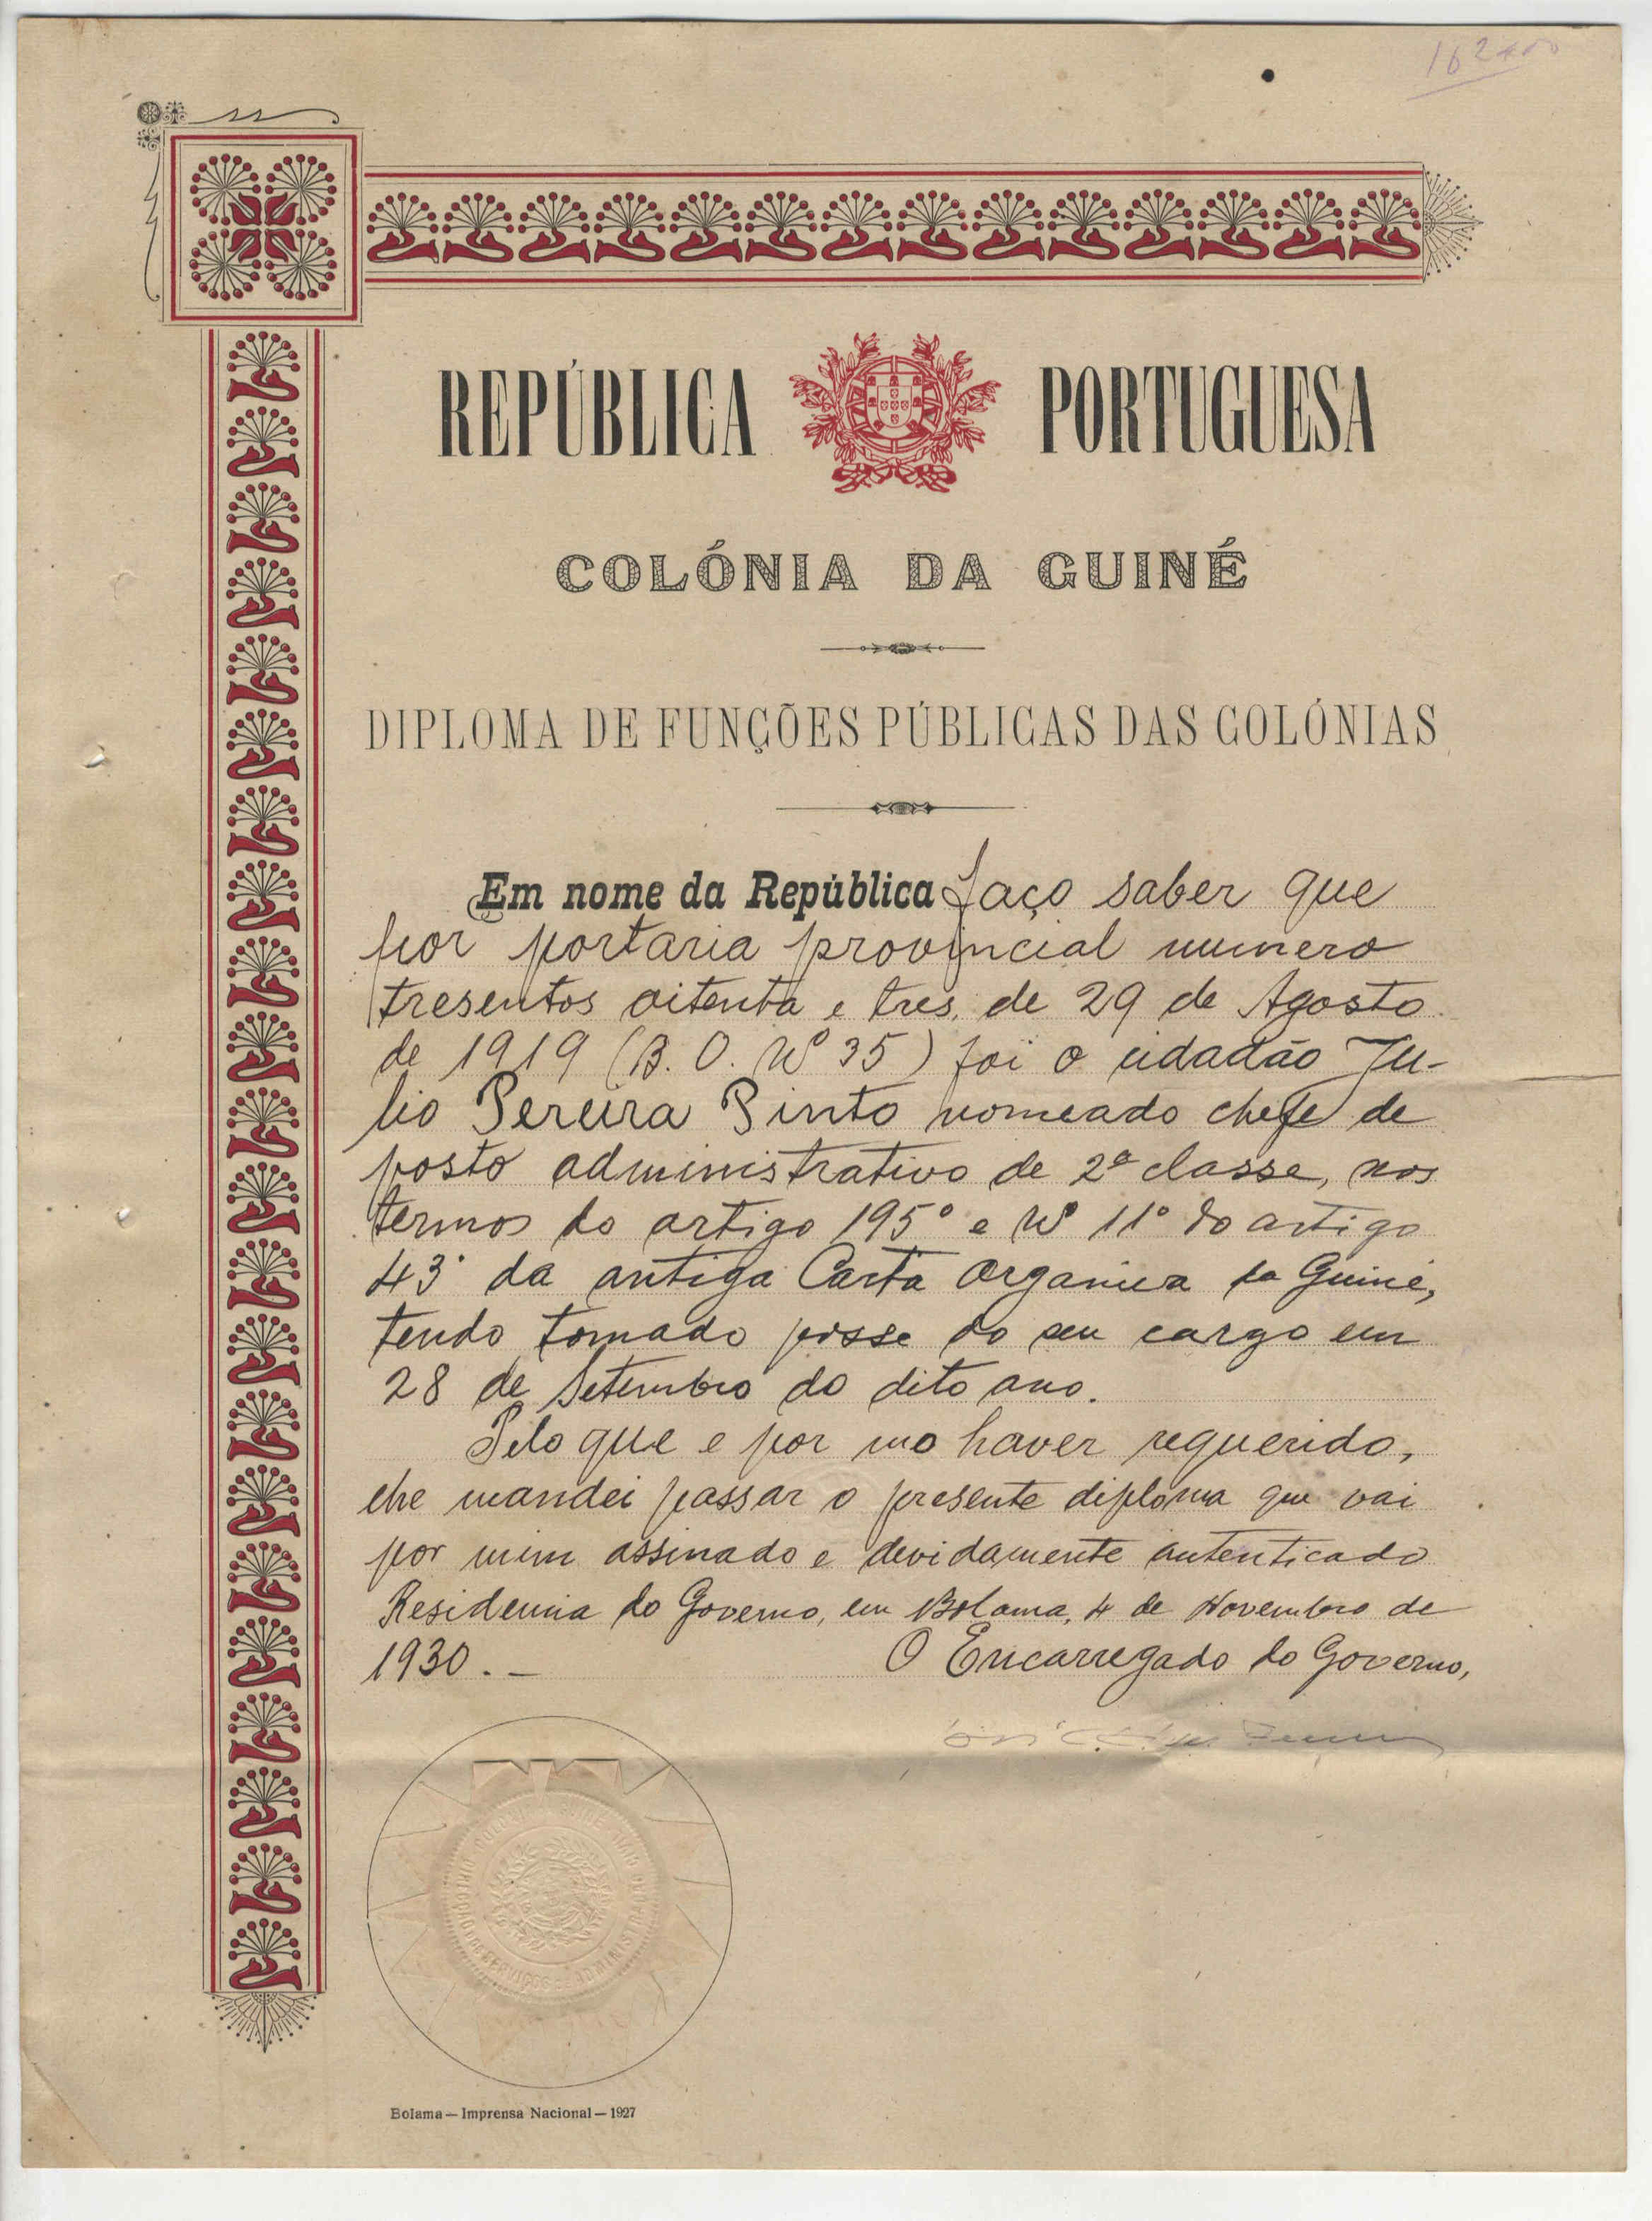 REPÚBLICA PORTUGUESA
COLÓNIA DA GUINÉ
DIPLOMA DE FUNÇÕES PÚBLICAS DAS COLÓNIAS
Em nome da República faço saber que
por portaria provincial numero
tresentos oitenta e tres, de 29 de Agosto
de 1919 (B. O. Nº 35) foi o cidadão Ju-
lio Pereira Pinto nomeado chefe de
posto administrativo de 2ª classe, nos
termos do artigo 195º e Nº 11º do artigo
43º da antiga Carta Organica da Guiné,
tendo tomado posse do seu cargo em
28 de Setembro do dito ano.
Pelo que e por mo haver requerido,
lhe mandei passar o presente diploma que vai
por mim assinado e devidamente autenticado
Residencia do Governo, em Bolama, 4 de Novembro de
1930.— O Encarregado do Governo,
Bolama — Imprensa Nacional — 1927